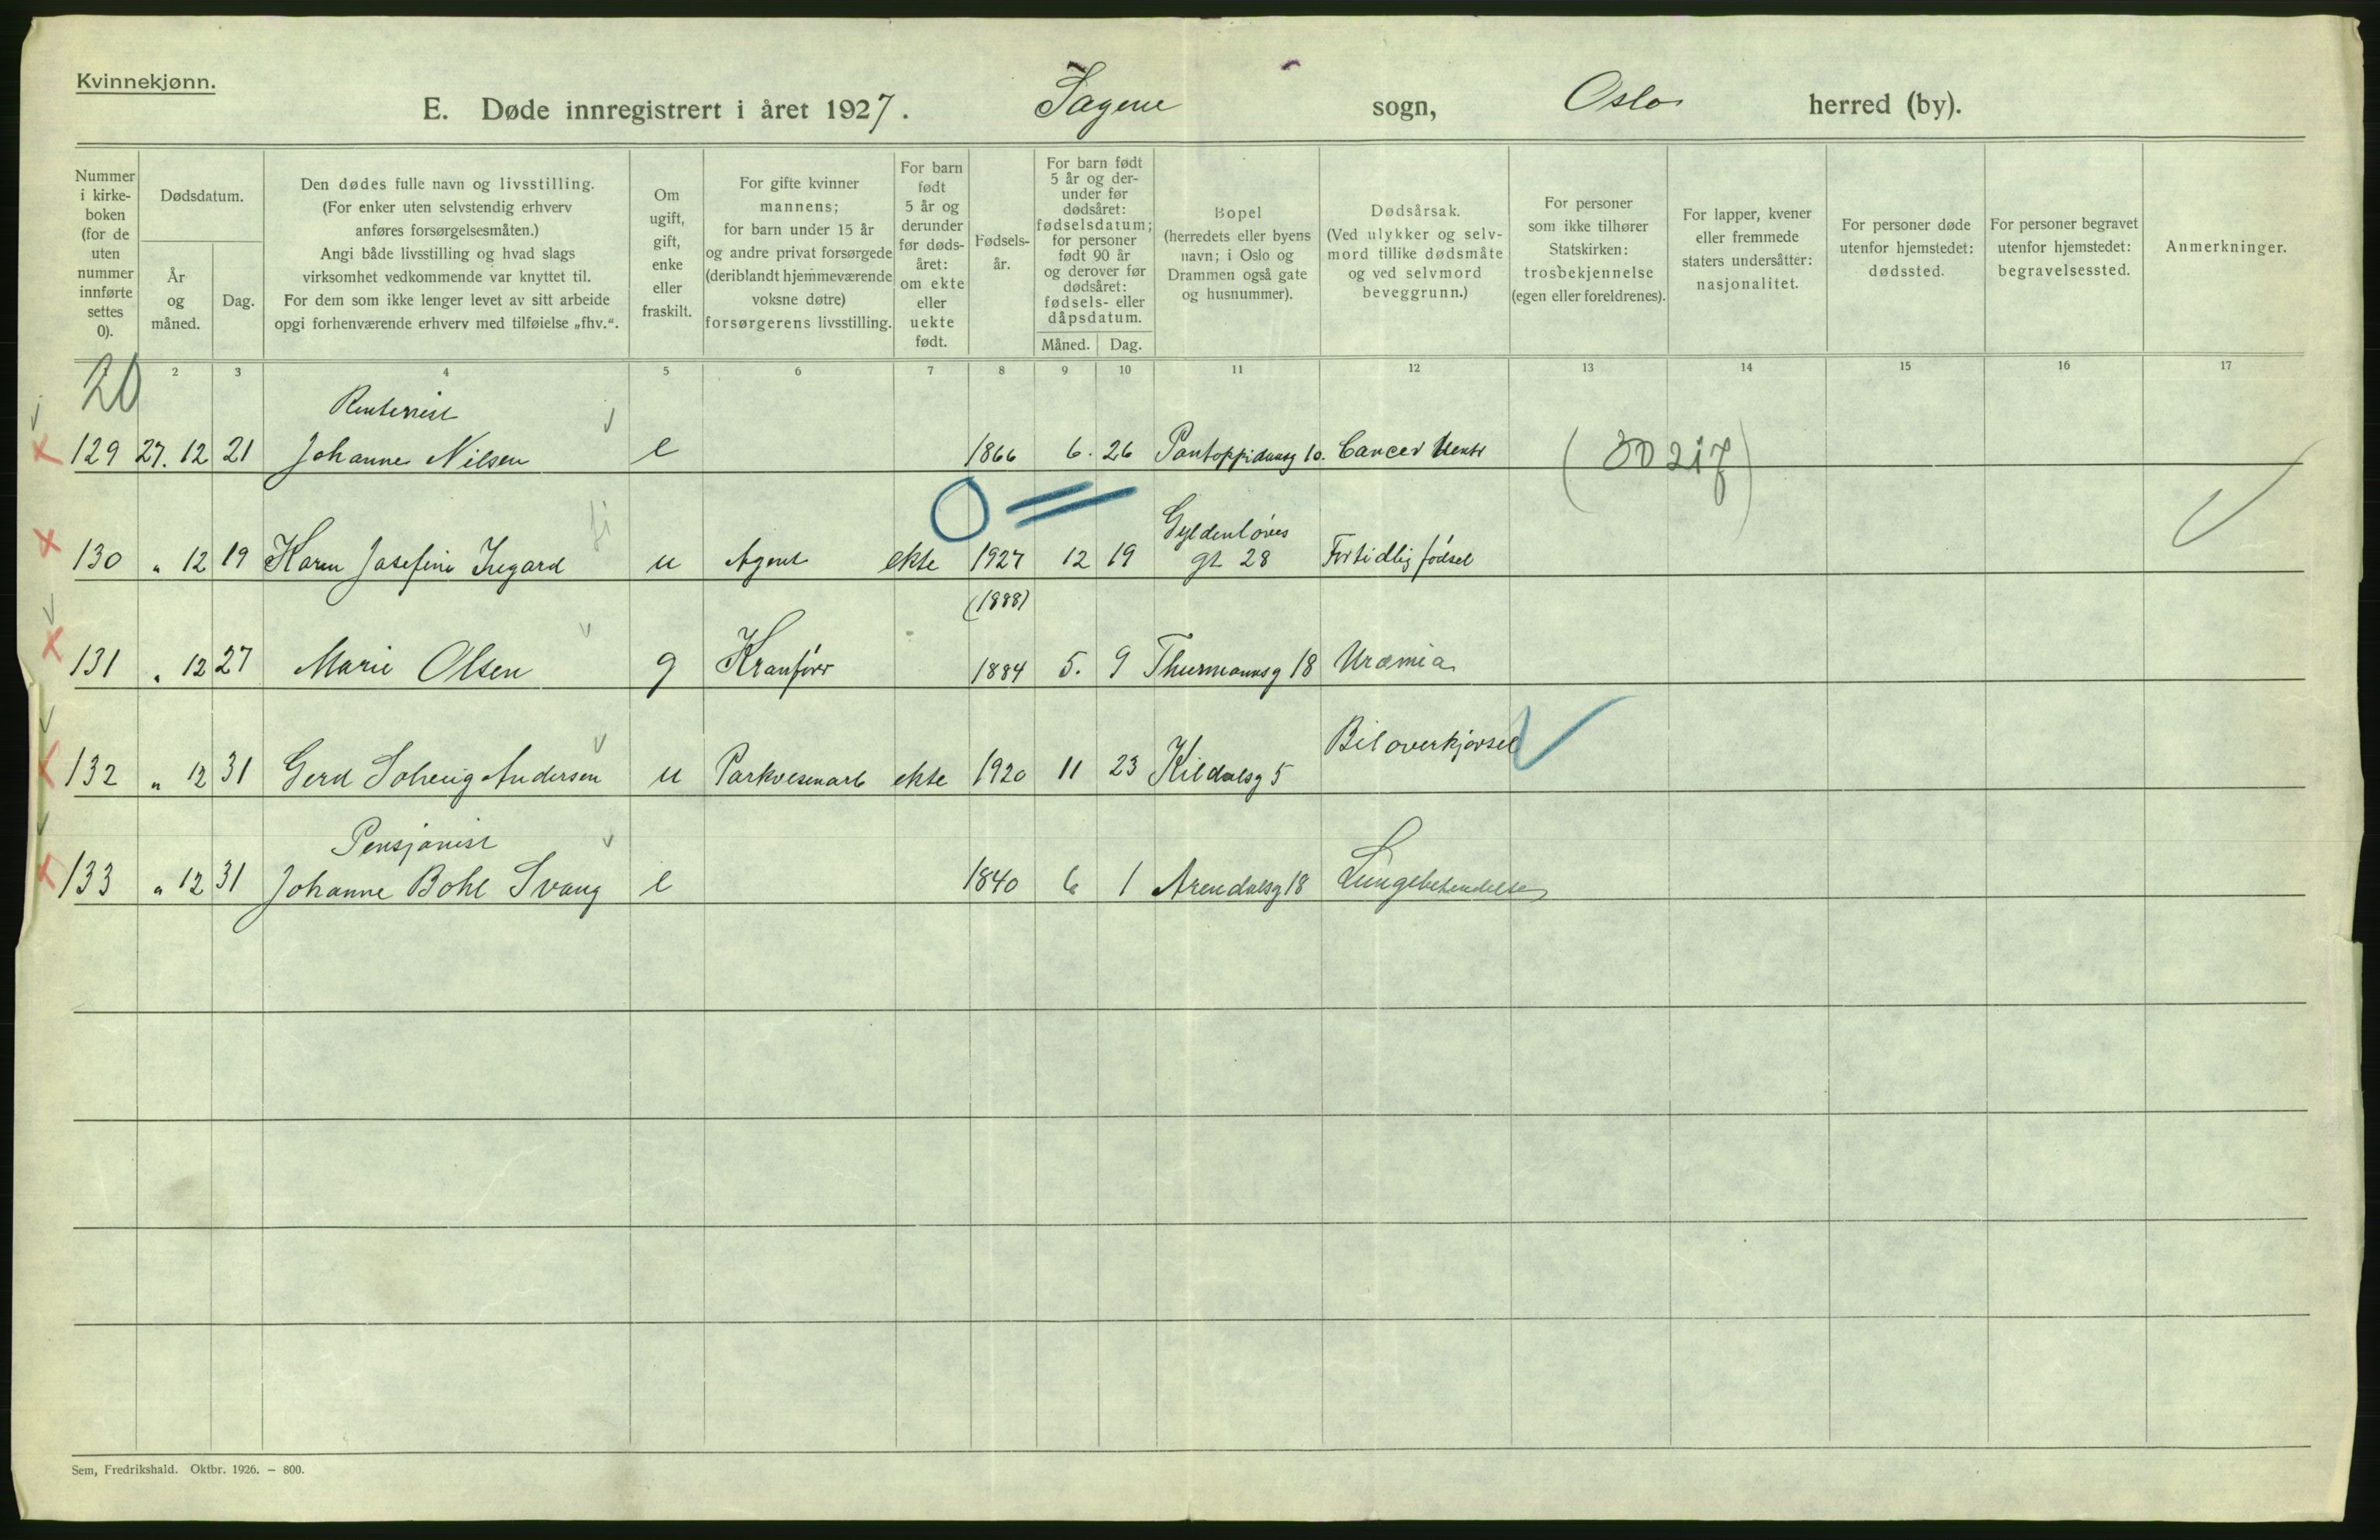 Kvinnekjønn.
E. Døde innregistrert i året 1927. Sagene sogn, Oslo herred (by).
Nummer i kirke- boken (for de uten nummer innførte settes 0).
Dødsdatum.
År og måned.
Dag.
Den dødes fulle navn og livsstilling.
(For enker uten selvstendig erhverv
anføres forsørgelsesmåten.)
Angi både livsstilling og hvad slags
virksomhet vedkommende var knyttet til.
For dem som ikke lenger levet av sitt arbeide
opgi forhenværende erhverv med tilføielse „fhv.“.
Om ugift, gift, enke eller fraskilt.
For gifte kvinner
mannens;
for barn under 15 år
og andre privat forsørgede
(deriblandt hjemmeværende
voksne døtre)
forsørgerens livsstilling.
For barn født 5 år og derunder før døds- året: om ekte eller uekte født.
Fødsels- år.
For barn født
5 år og der-
under før
dødsåret:
fødselsdatum;
for personer
født 90 år
og derover før
dødsåret:
fødsels- eller
dåpsdatum.
Måned. Dag.
Bopel
(herredets eller byens
navn; i Oslo og
Drammen også gate
og husnummer).
Dødsårsak.
(Ved ulykker og selv-
mord tillike dødsmåte
og ved selvmord
beveggrunn.)
For personer
som ikke tilhører
Statskirken:
trosbekjennelse
(egen eller foreldrenes).
For lapper, kvener
eller fremmede
staters undersåtter:
nasjonalitet.
For personer døde
utenfor hjemstedet:
dødssted.
For personer begravet
utenfor hjemstedet:
begravelsessted.
Anmerkninger.
20 2 3 4 5 6 7 8 9 10 11 12 13 14 15 16 17
Rentenist
129 27. 12 21 Johanne Nilsen e 1866 6. 26 Pantoppidansg 10. Cancer Ventr (30217)
Gyldenløves
130 " 12 19 Karen Josefine u Agent ekte 1927 12 19 gt 28 Fortidlig fødsel
(1888)
131 " 12 27 Marie Olsen g Kranfører 1884 5. 9 Thurmannsg 18 Uræmia
Biloverkjørsel
132 " 12 31 Gerd Solveig Andersen u Parkvesenarb ekte 1920 11 23 Kildalsg 5
Pensjonist
133 " 12 31 Johanne Bohl Svang e 1840 6 1 Arendalsg 18 Lungebetendelse
Sem, Fredrikshald. Oktbr. 1926. – 800.